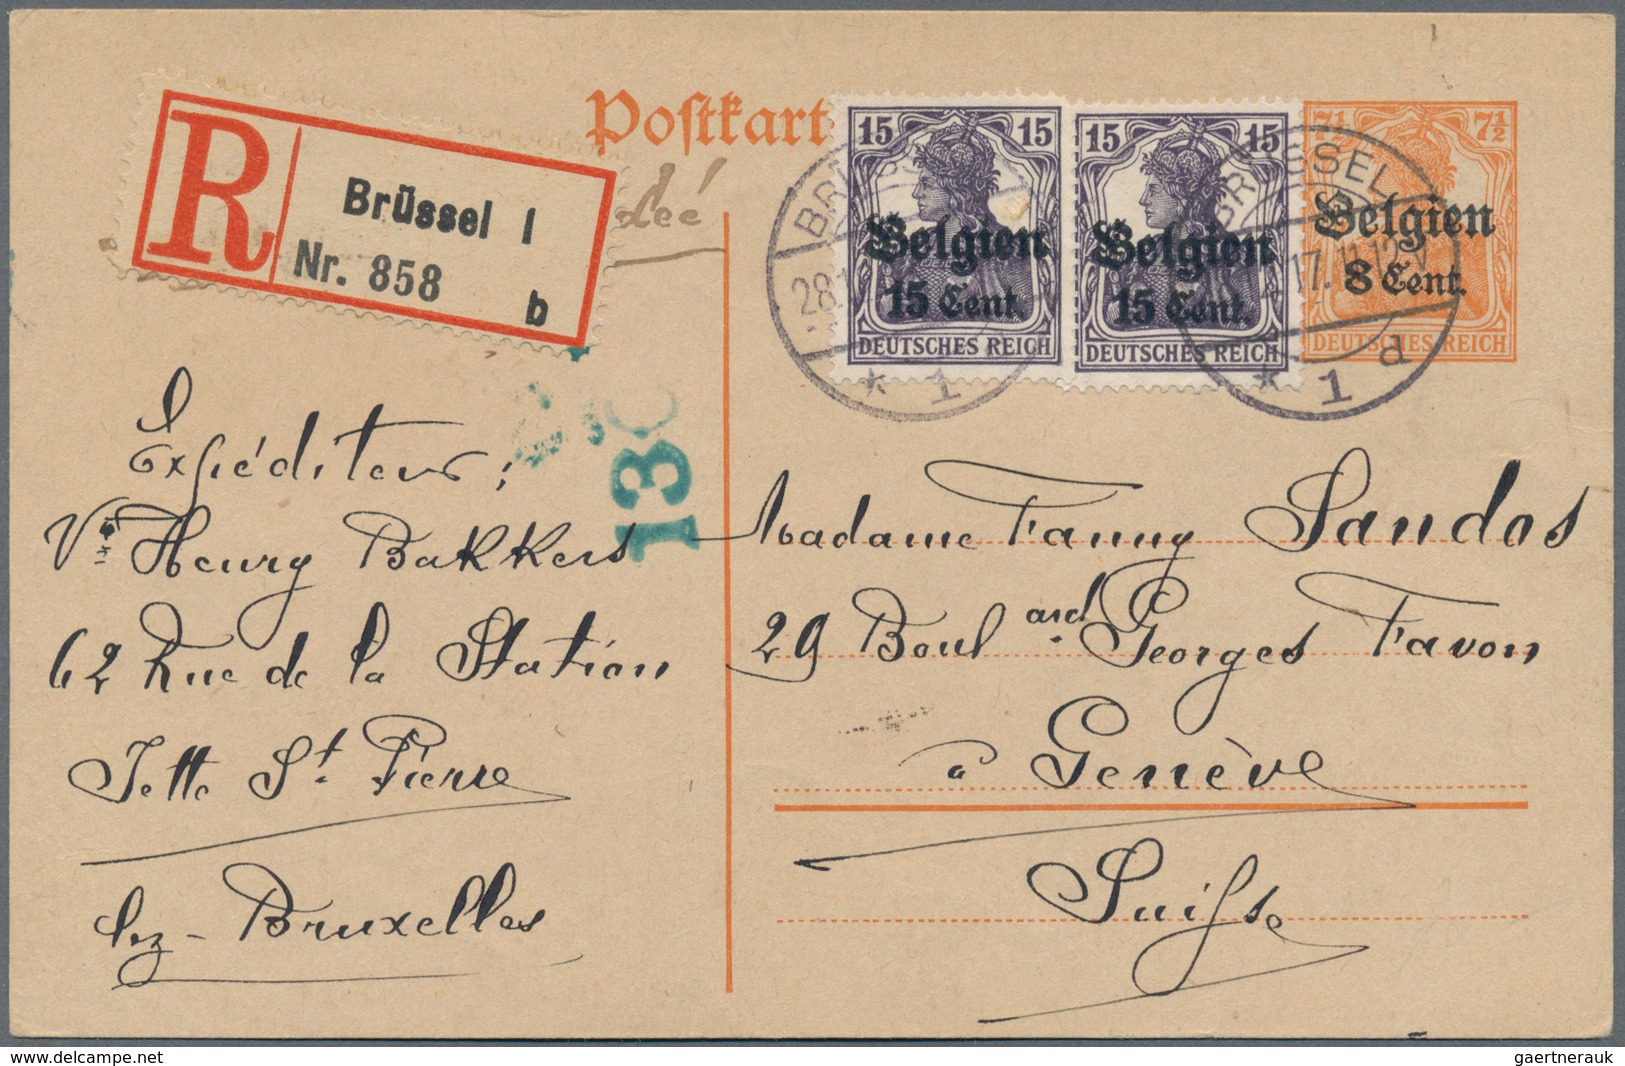 Postkart
R
Brüssel 1
Nr. 858
b
15 15
Belgien
15 Cent.
DEUTSCHES REICH
15 15
Belgien
15 Cent.
DEUTSCHES REICH
7½ 7½
Belgien
8 Cent.
DEUTSCHES REICH
28.
* 1
BRÜSSEL
17. 11-12
* 1 d
13
Expéditeur;
Vve Henry Bakkers
62 Rue de la Station
Jette St. Pierre
lez-Bruxelles
Madame Fanny Sandos
29 Boulard Georges Favon
à Genève
Suisse
www.delcampe.net
gaertnerauk